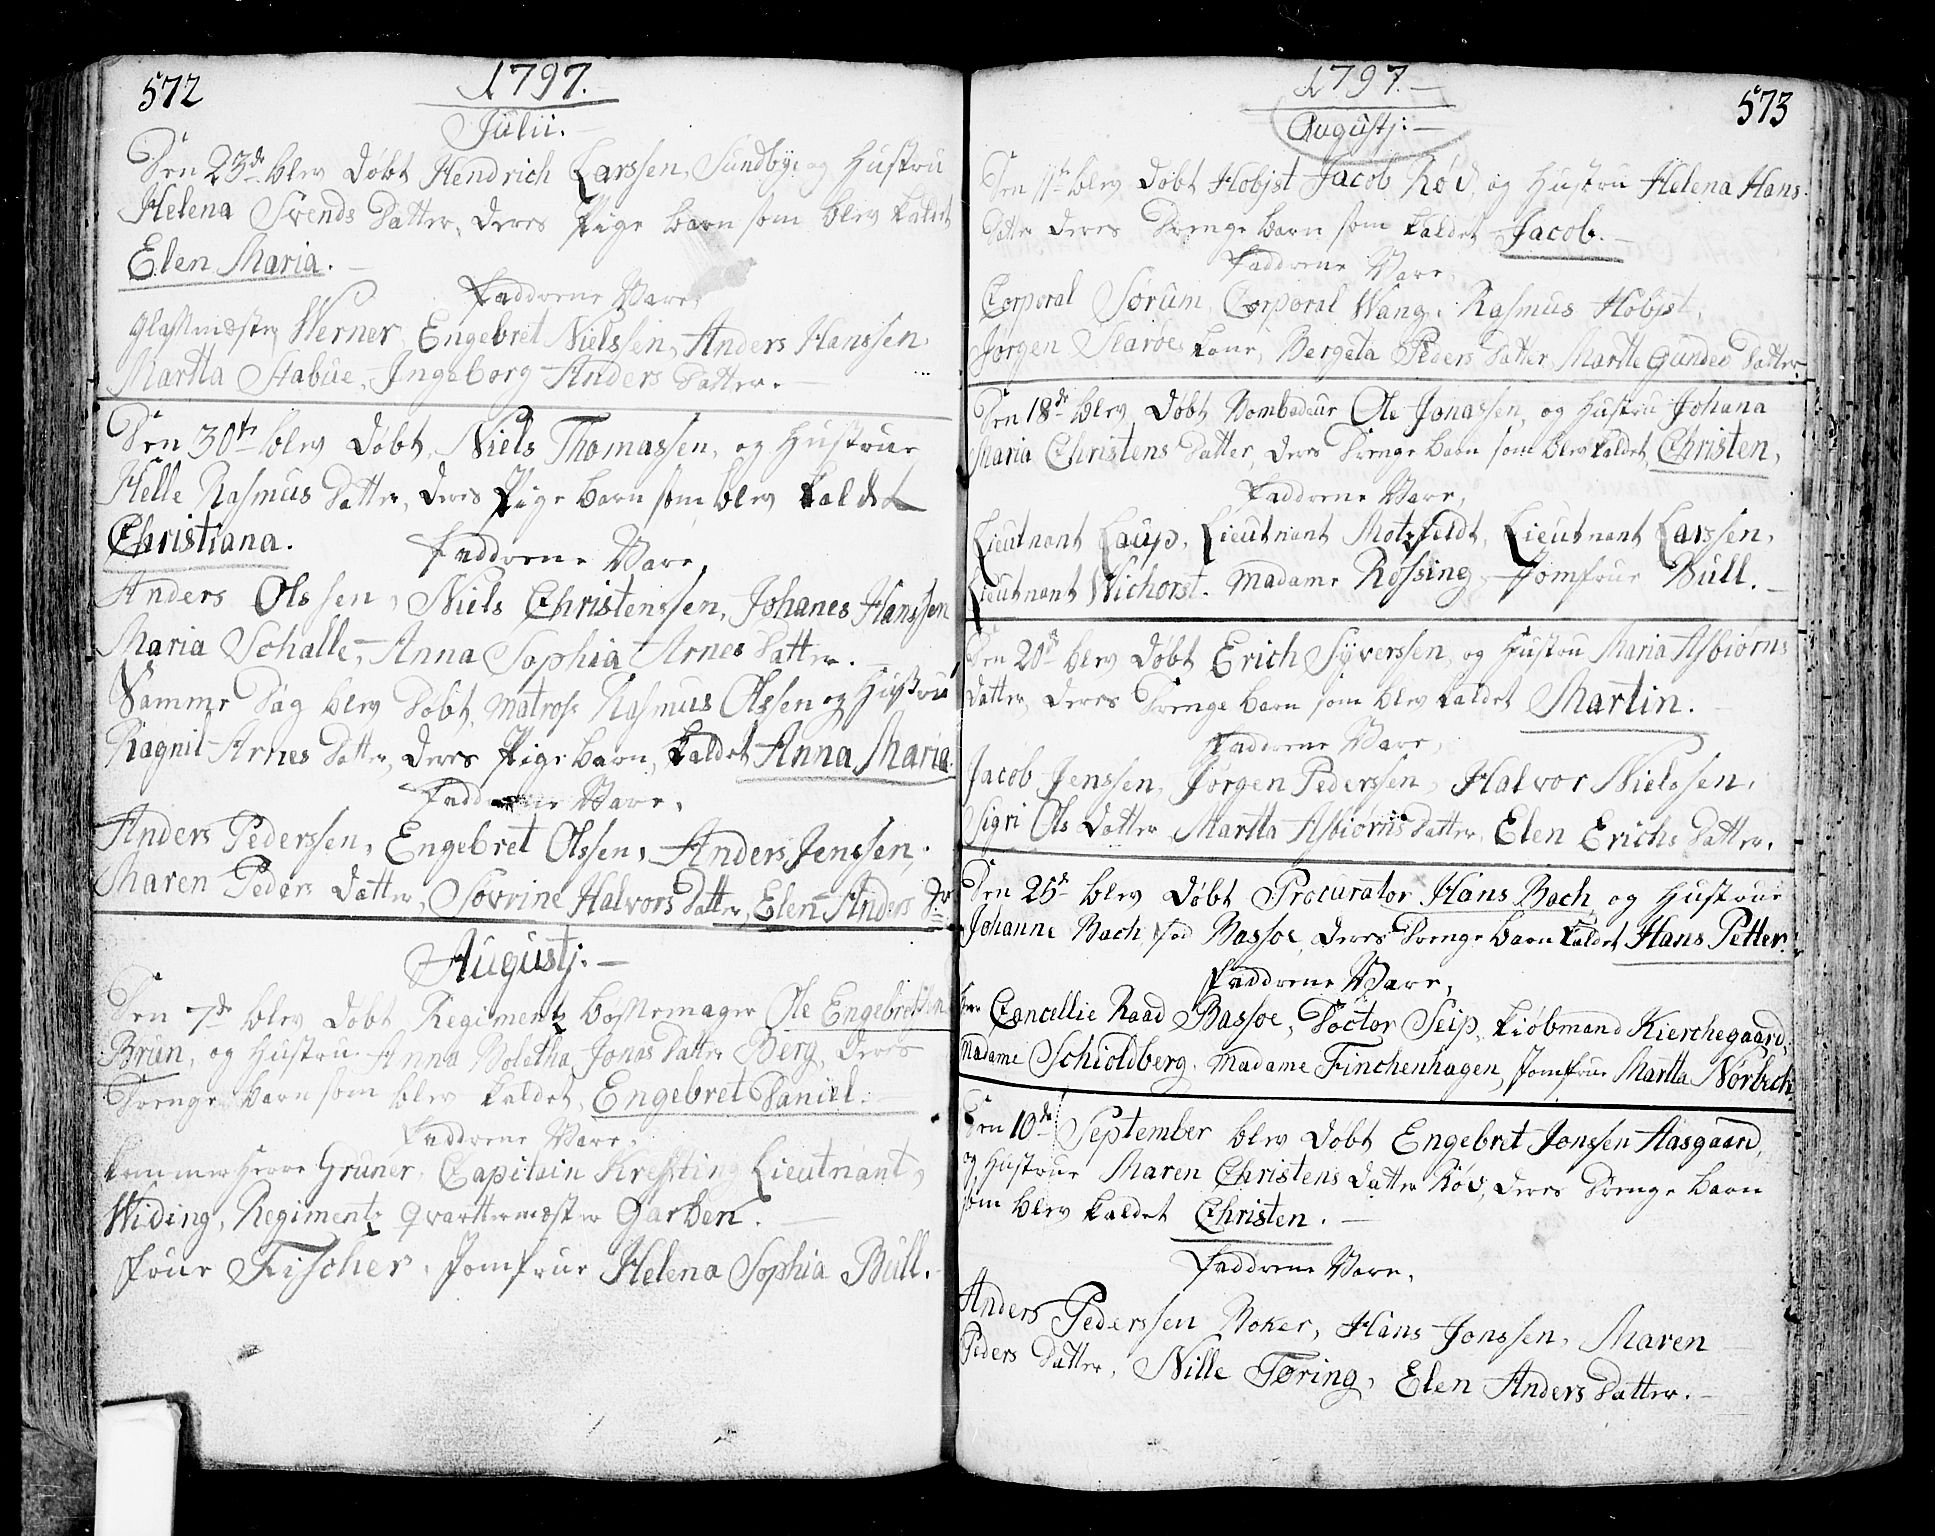 572
1797.
Julii. —
Den 23de blev Døbt Hendrich Larssen, Sundbye og Hustru
Helena Svends Datter, deres Pige barn som blev kaldet
Elen Maria. —
Faddrene Vare,
Glassmæster Werner, Engebret Nielssen, Anders Hanssen,
Martta Stabue, Ingeborg Anders Datter. —
Den 30te blev Døbt, Niels Thomassen, og Hustrue
Helle Rasmus Datter, deres Pige barn som blev kaldet
Christiana.
Faddrene Vare,
Anders Olssen, Niels Christenssen, Johanes Hanssen
Maria Schalle, Anna Sophia Arnes Datter. —
Samme Dag blev Døbt, Matros Rasmus Olssen og Hustru
Ragnil Arnes Datter, deres Pige barn, kaldet Anna Maria.
Faddrene Vare,
Anders Pederssen, Engebret Olssen, Anders Jenssen,
Maren Peders Datter, Sovrine Halvors Datter, Elen Anders Dr
Augustj: —
Den 7de blev Døbt Regimentz bossemager Ole Engebretssen
Brun, og Hustru Anna Boletha Jonas Datter Berg, deres
Drenge barn som blev kaldet, Engebret Daniel. —
Faddrene Vare,
kammer Herre Gruner, Capitain Kressting Lieutnant
Widing, Regimentz Qvarttermæster Garben. —
Frue Fischer, Jomfrue Helena Sophia Bull.
573
1797. —
Augustj: —
Den 11te blev Døbt Hobjst Jacob Rød, og Hustru Helena Hans
Datter deres Drenge barn som kaldet Jacob. —
Faddrene Vare,
Corporal Sørum, Corporal Wang, Rasmus Hobjst,
Jørgen Scarøes kone, Bergeta Peders Datter, Martte Gunded Datter.
Den 18de blev Døbt Bombadeur Ole Jonassen, og Hustru Johana
Maria Christens Datter, deres Drenge barn som blev kaldet, Christen,
Faddrene Vare,
Lieutnant Caup, Lieutnant Motzfeldt, Lieutnant Larssen,
Lieutnant Wichorst. Madame Røssing, Jomfrue Bull. —
Den 20de blev Døbt Erich Syverssen, og Hustru Maria Asbiorns
Datter, deres Drenge barn som blev kaldet Martin.
Faddrene Vare,
Jacob Jenssen, Jørgen Pederssen, Halvor Nielssen,
Sigri Ols Datter, Martta Asbiorns Datter, Elen Erichs Datter.
Den 25de blev Døbt Procurator Hans Bach, og Hustrue
Johanne Bach, fød Bassøe, deres Drenge barn kaldet Hans Petter.
Faddrene Vare,
Herr Cancellie Raad Bassøe, Doctor Seip, kiøbmand Kierchegaard,
Madame Schioldberg. Madame Finchenhagen, Jomfrue Martta Nørbech
Den 10de September blev Døbt Engebret Jonssen Aasgaard,
og Hustrue Maren Christens Datter Røv, deres Drenge barn
som blev kaldet Christen. —
Faddrene Vare,
Anders Pederssen Boker, Hans Jonssen, Maren
Peders Datter, Nille Tøring, Elen Anders Datter. —